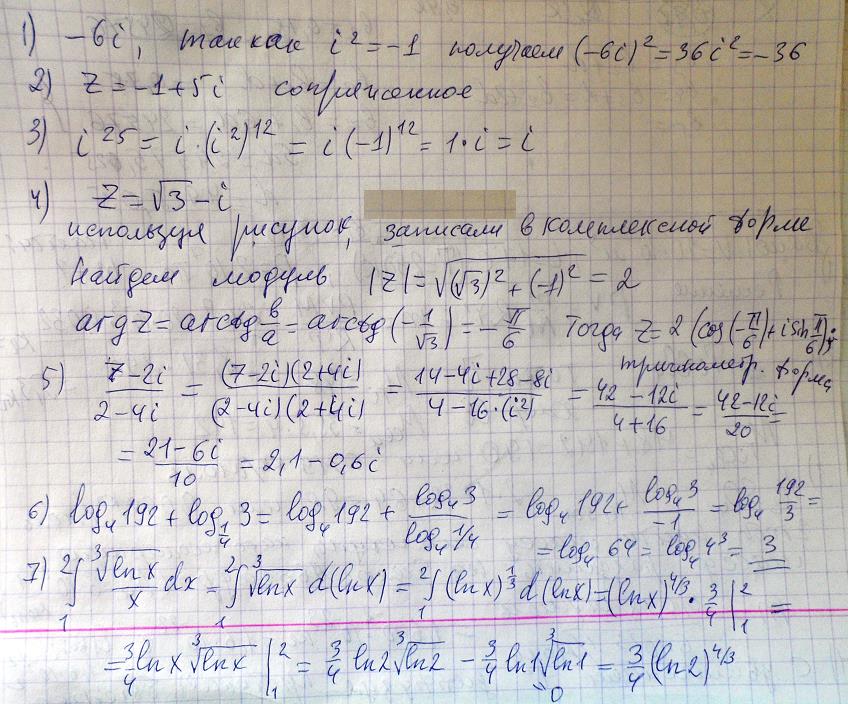 1) -6i, так как i² = -1 получаем (-6i)² = 36i² = -36
2) Z = -1+5i сопряженное
3) i²⁵ = i·(i²)¹² = i(-1)¹² = 1·i = i
4) Z = √3 - i
используя рисунок, записали в комплексной форме
Найдем модуль |Z| = √((√3)² + (-1)²) = 2
arg Z = arctg b/a = arctg(-1/√3) = -π/6 Тогда Z = 2(cos(-π/6) + i sin π/6);
тригонометр. форма
5) (7-2i)/(2-4i) = ((7-2i)(2+4i))/((2-4i)(2+4i)) = (14-4i+28-8i)/(4-16·(i²)) = (42-12i)/(4+16) = (42-12i)/20 =
= (21-6i)/10 = 2,1-0,6i
6) log₄192 + log_{1/4} 3 = log₄192 + (log₄3)/(log₄1/4) = log₄192 + (log₄3)/(-1) = log₄ 192/3 =
= log₄ 64 = log₄4³ = 3
7) ₁²∫ ³√(ln x)/x dx = ₁²∫ ³√(ln x) d(ln x) = ₁²∫ (ln x)^{1/3} d(ln x) = (ln x)^{4/3} · 3/4 |₁² =
= 3/4 ln x ³√(ln x) |₁² = 3/4 ln2 ³√(ln2) - 3/4 ln1 ³√(ln1) = 3/4 (ln2)^{4/3}
0